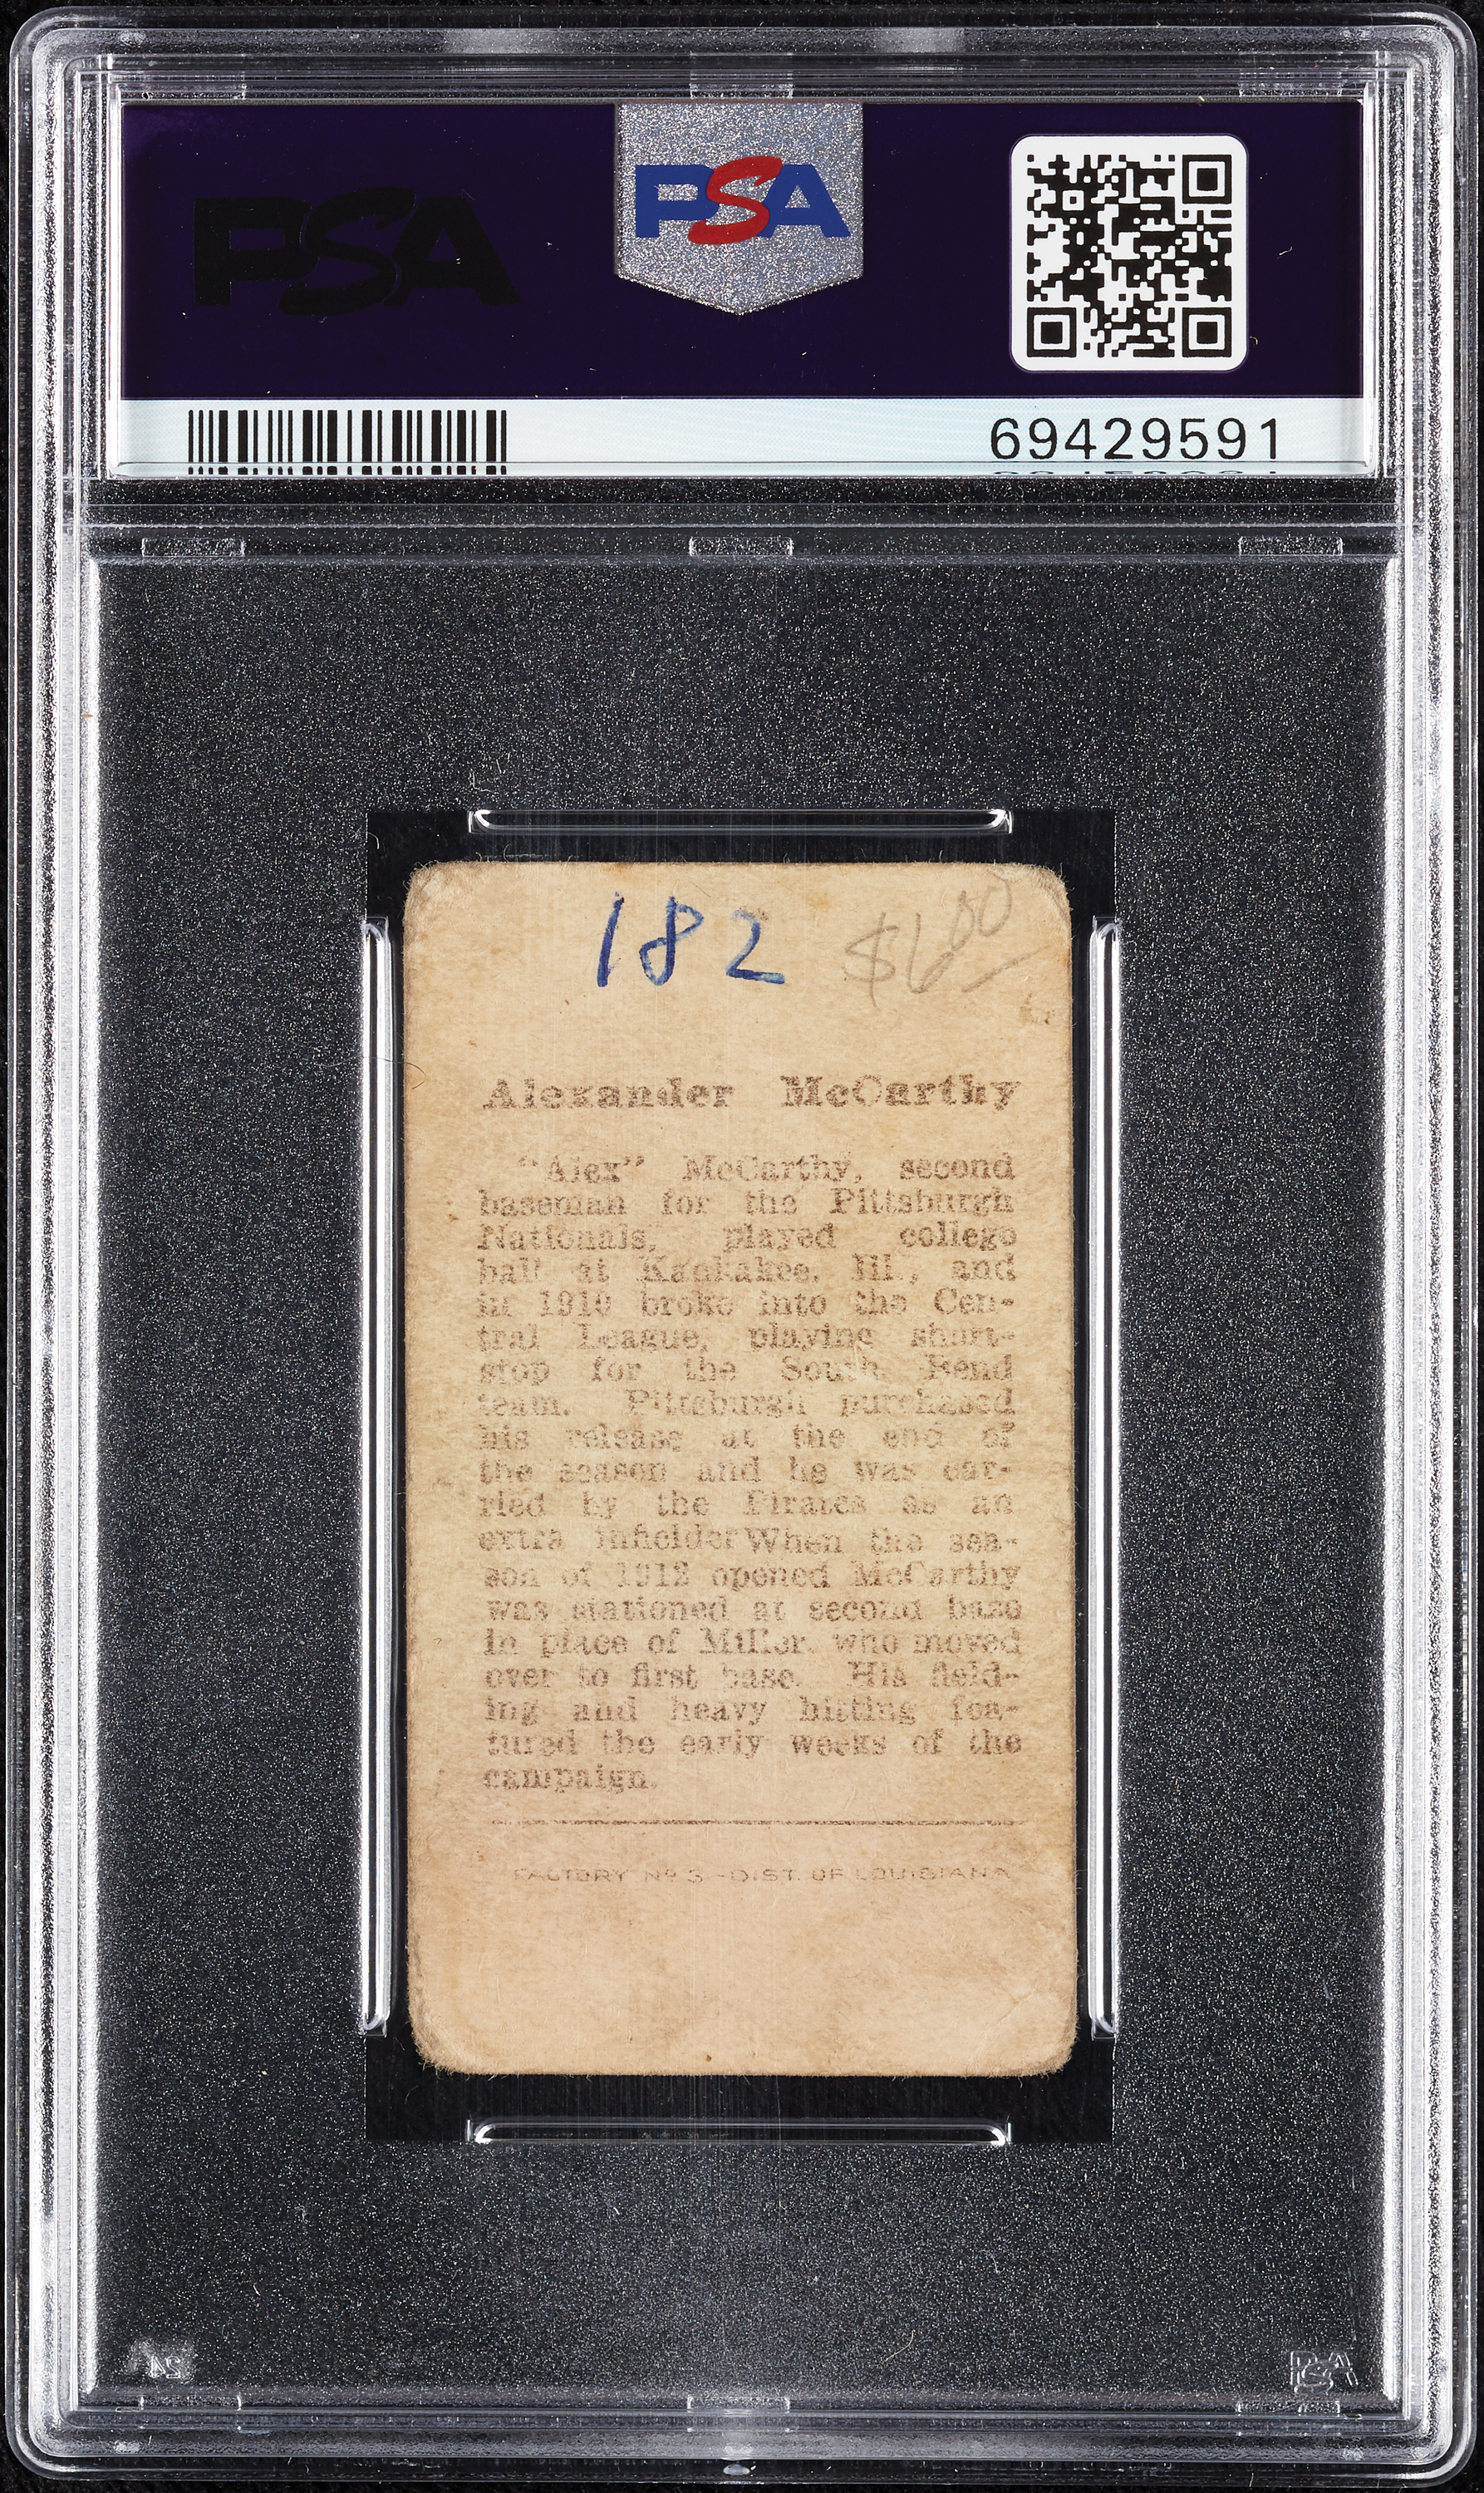 PSA
PSA
69429591
182 $6 00
Alexander McCarthy
"Alex" McCarthy, second
baseman for the Pittsburgh
Nationals, played college
ball at Kankakee, Ill., and
in 1910 broke into the Cen-
tral League, playing short-
stop for the South Bend
team. Pittsburgh purchased
his release at the end of
the season and he was car-
ried by the Pirates as an
extra infielder When the sea-
son of 1912 opened McCarthy
was stationed at second base
in place of Miller, who moved
over to first base. His field-
ing and heavy hitting fea-
tured the early weeks of the
campaign.
FACTORY Nº 3 - DIST. OF LOUISIANA
PSA